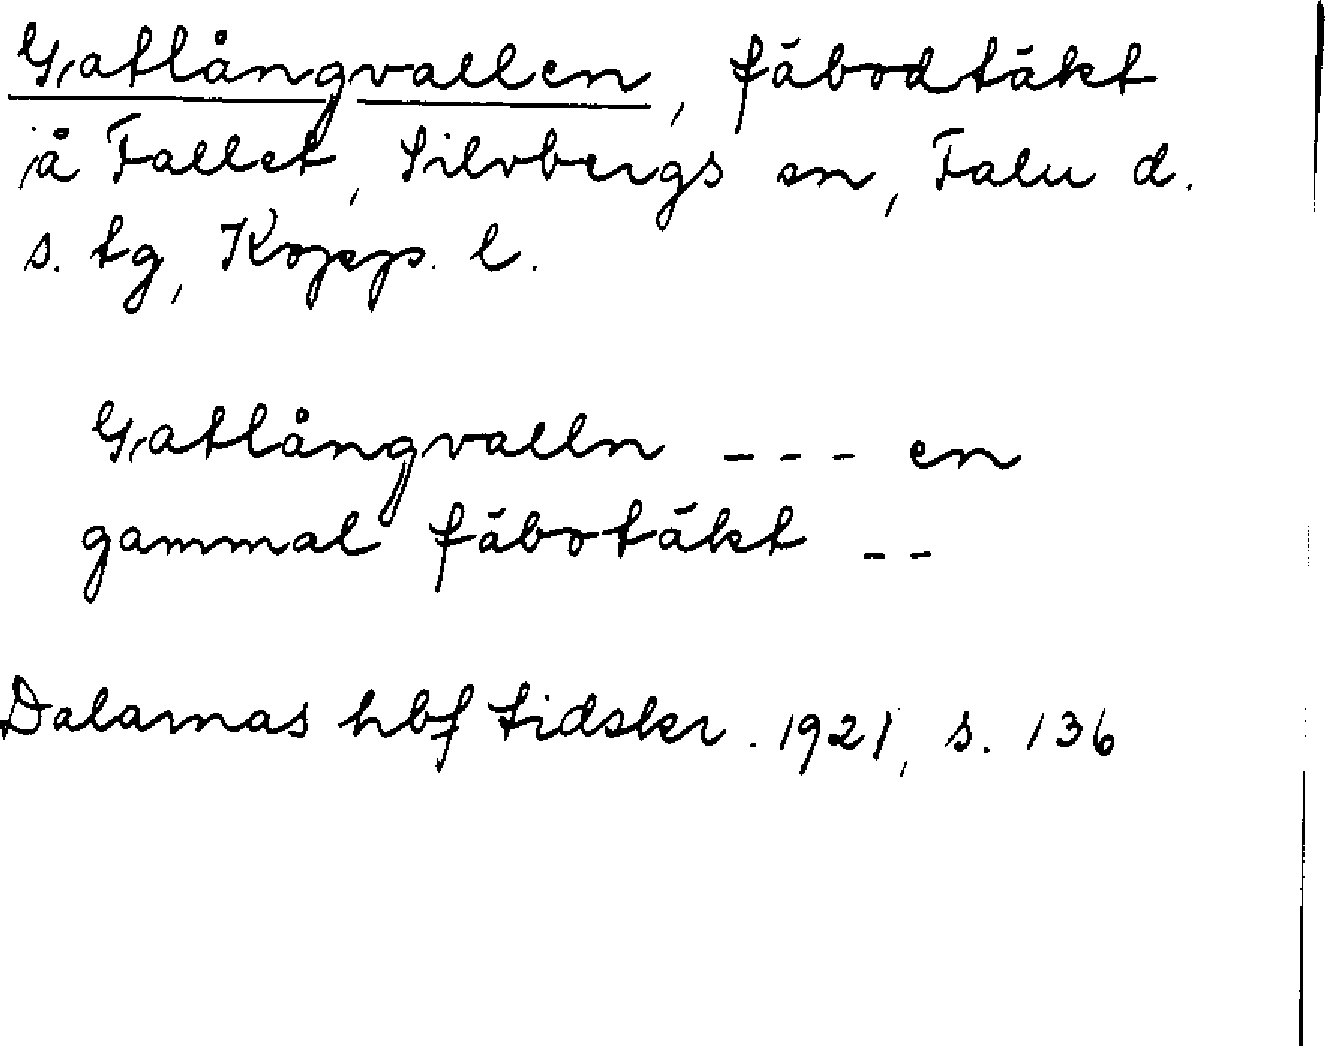 Gatlångvallen, fäbodtäkt
å Fallet, Silvbergs sn, Falu d.
s. tg, Kopp. l.
Gatlångvalln --- en
gammal fäbotäkt --
Dalarnas hbf tidskr. 1921, s. 136